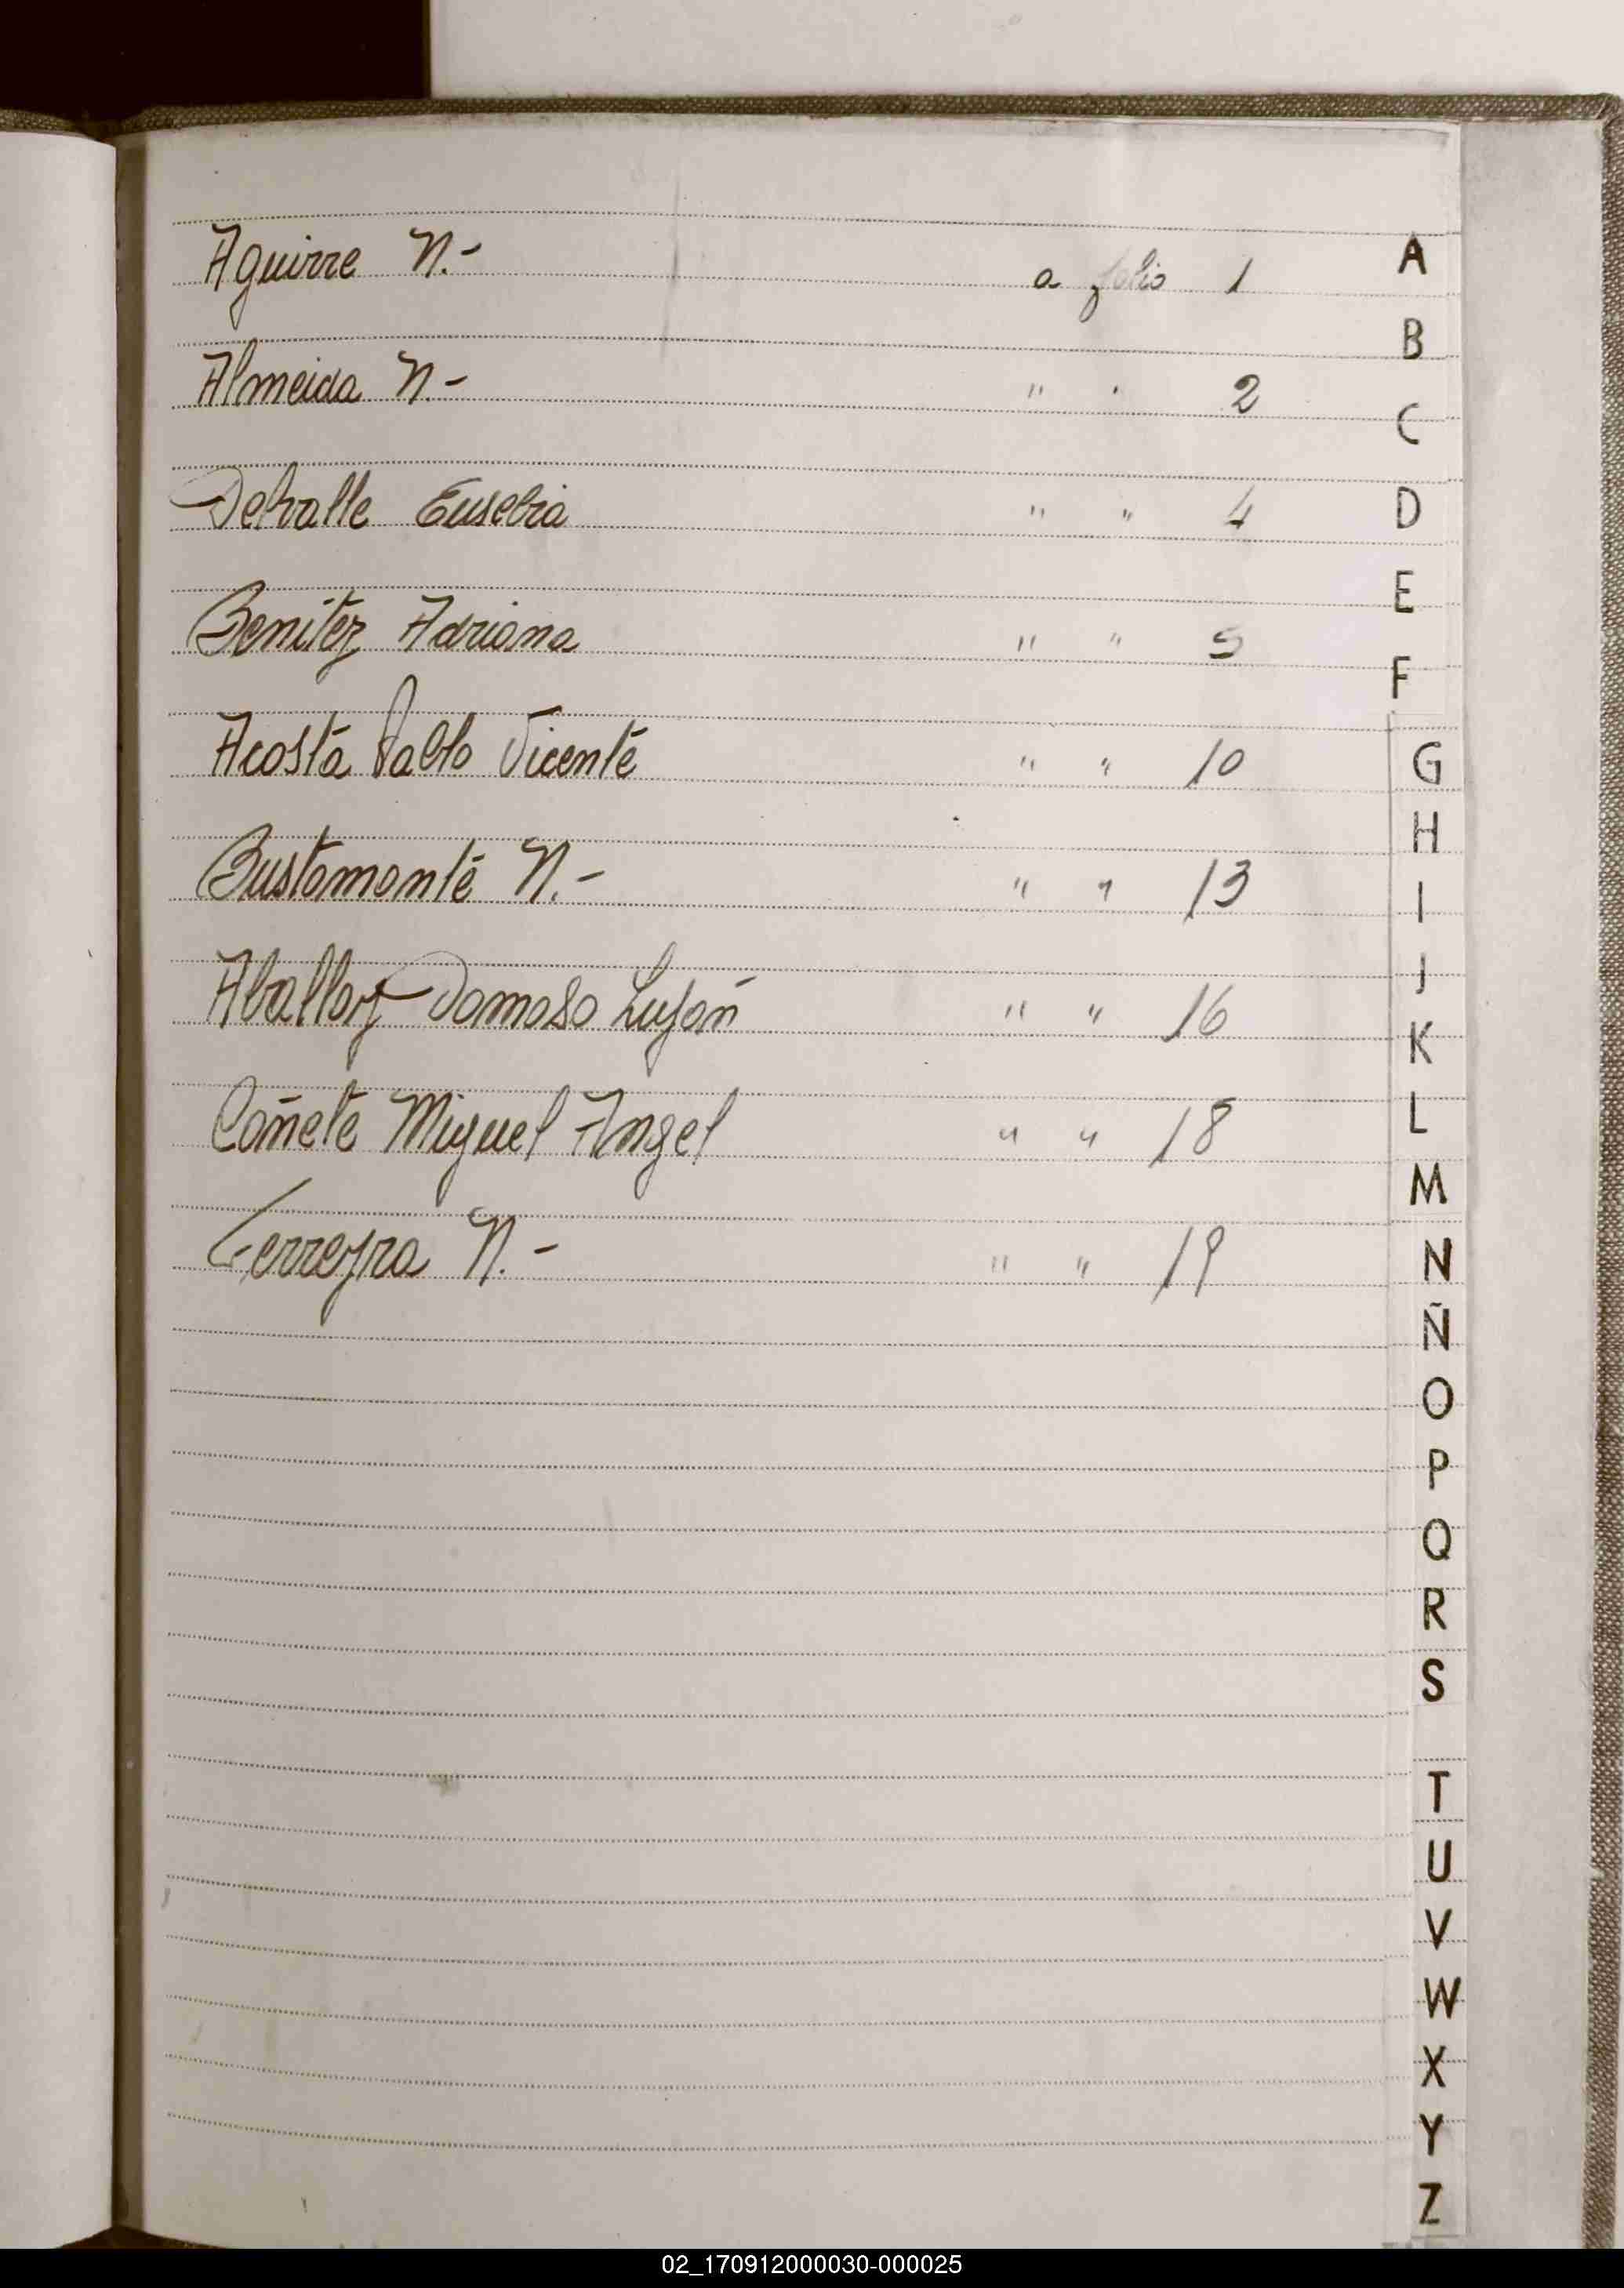 Aguirre N.- a folio 1
Almeida N.- " " 2
Delvalle Eusebia " " 4
Benitez Adriana " " 5
Acosta Pablo Vicente " " 10
Bustamante N.- " " 13
Aballay Damaso Luján " " 16
Cañete Miguel Angel " " 18
Ferreyra N.- " " 19
A
B
C
D
E
F
G
H
I
J
K
L
M
N
Ñ
O
P
Q
R
S
T
U
V
W
X
Y
Z
02_170912000030-000025